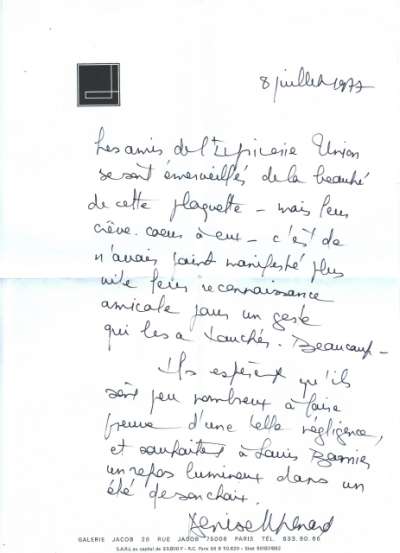 8 juillet 1977
Les amis de l'Epicerie Union
se sont émerveillés de la beauté
de cette plaquette – mais leur
crève-coeur à eux – c'est de
n'avoir point manifesté plus
vite leur reconnaissance
amicale pour un geste
qui les a touchés. Beaucoup –
Ils espèrent qu'ils
sont peu nombreux à faire
preuve d'une telle négligence,
et souhaitent à Louis
un repos lumineux dans un
été de son choix.
Denise
GALERIE JACOB 28 RUE JACOB 75006 PARIS TÉL. 633.90.66
S.A.R.L. au capital de